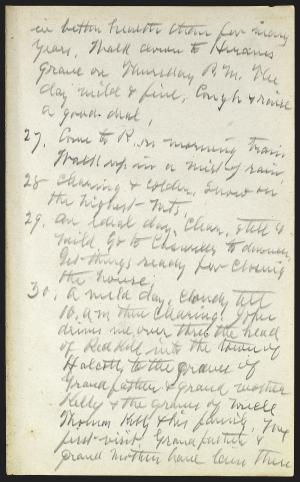 in better health than for many
years. Walk down to Hiram's
Grave on Thursday P.M. The
day mild & fine. Cough & raise
a good deal.
27, Come to R. on morning train
Walk up in a mist of rain,
28 Clearing & colder. Snow on
the highest Mts.
29. An ideal day, Clear, still &
mild Go to to dinner,
Get things ready for closing
the house;
30, A mild day, Cloudy till
10. a m then clearing. John
drives me over thro the head
of Red Kill into the town of
Halcott, to the graves of
Grandfather & Grand mother
Kelly & the graves of Uncle
Thomas Kelly & his family, My
first visit, Grandfather &
grand mother have lain there